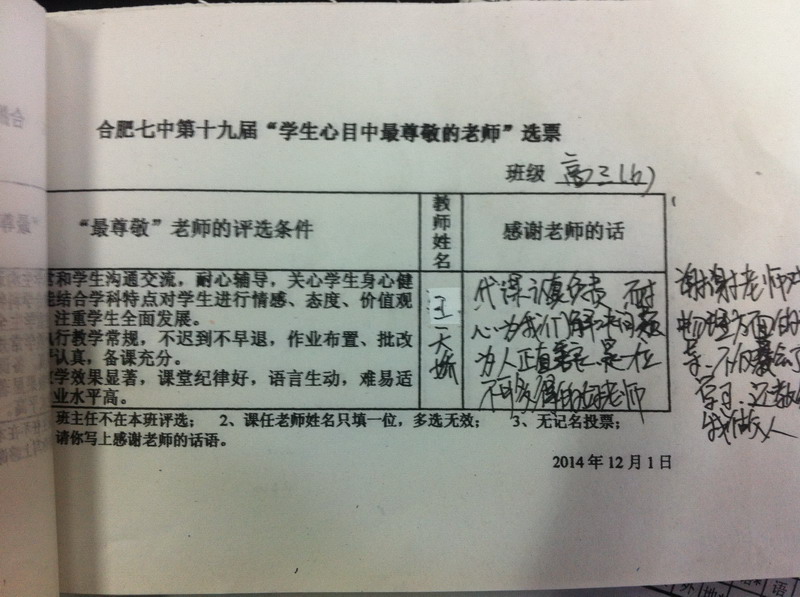 合肥七中第十九届“学生心目中最尊敬的老师”选票
班级 高三(6)
“最尊敬”老师的评选条件
教师姓名
感谢老师的话
和学生沟通交流，耐心辅导，关心学生身心健
结合学科特点对学生进行情感、态度、价值观
注重学生全面发展。
行教学常规，不迟到不早退，作业布置、批改
认真，备课充分。
学效果显著，课堂纪律好，语言生动，难易适
业水平高。
王
代课认真负责，耐
心为我们解决问题
为人正直 是一位
不可多得的好老师
谢谢老师
物理方面的
学习，还教
我做人
班主任不在本班评选； 2、课任老师姓名只填一位，多选无效； 3、无记名投票；
请你写上感谢老师的话语。
2014年12月1日